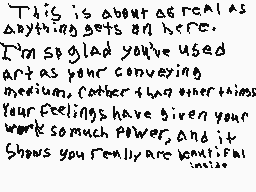 This is about as real as
anything gets on here.
I'm so glad you've used
art as your conveying
medium, rather than other things
Your feelings have given your
work so much power, and it
shows you really are beautiful
inside